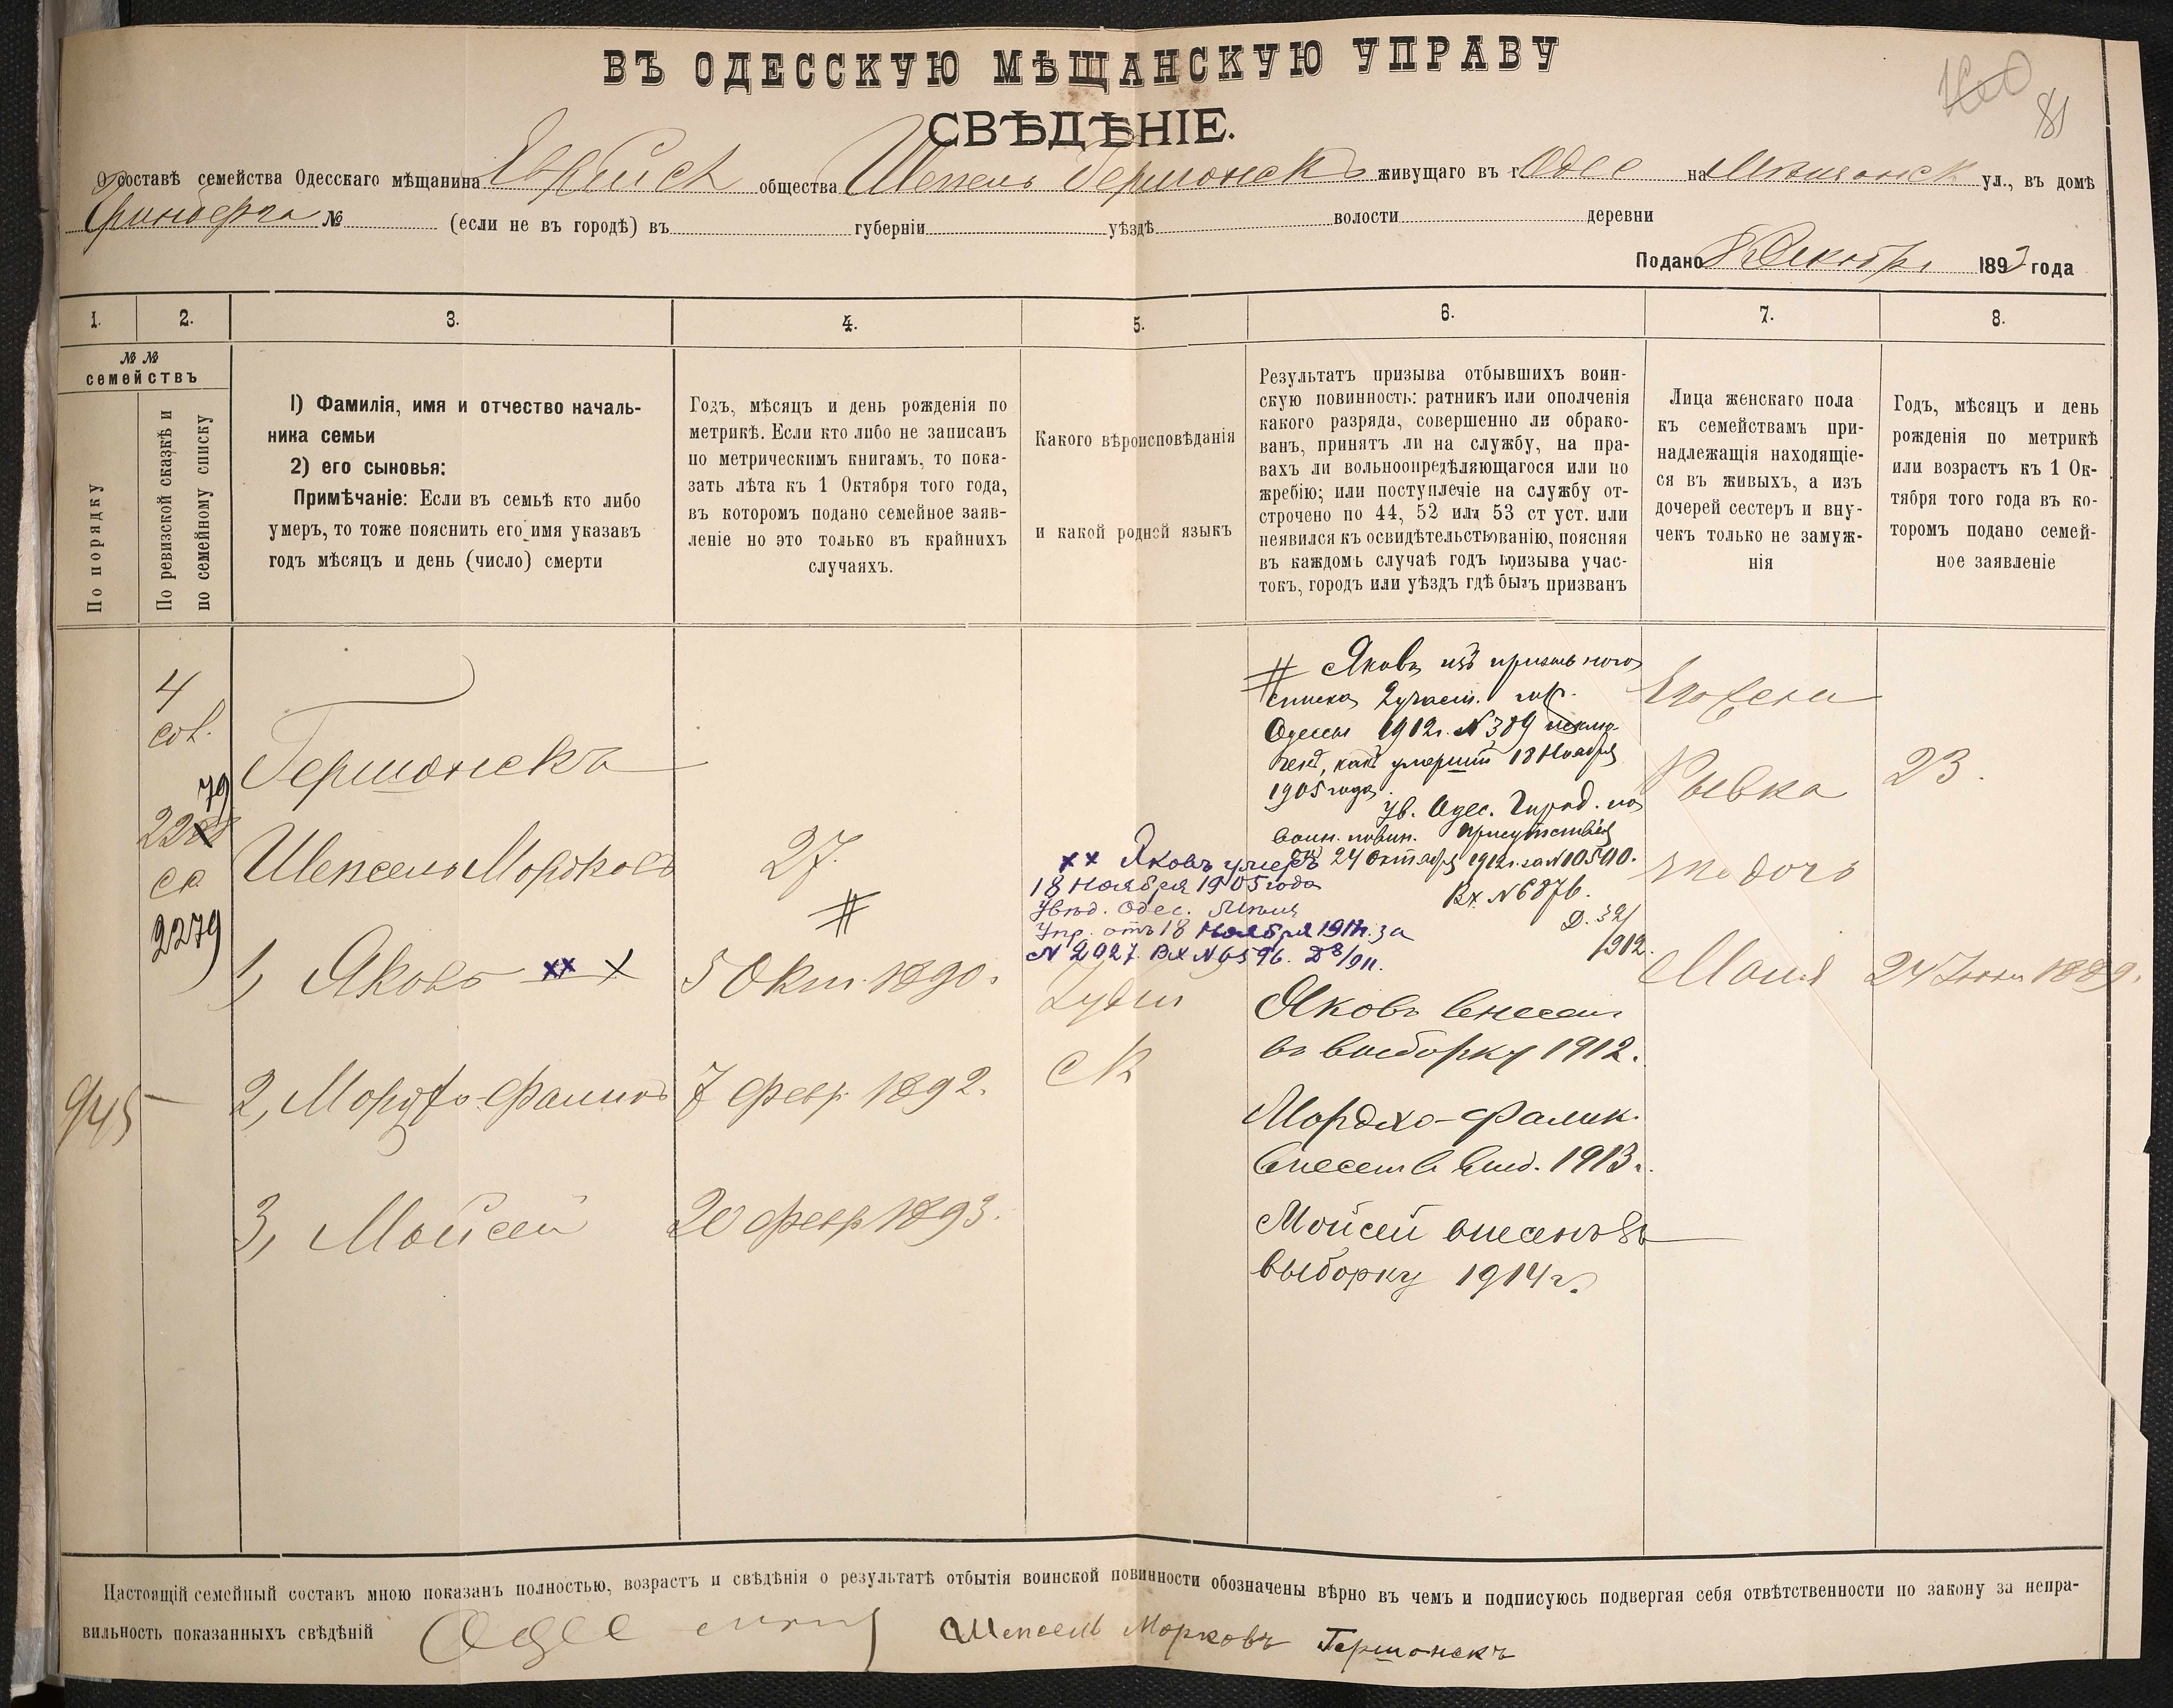 ВЪ ОДЕССКУЮ МѢЩАНСКУЮ УПРАВУ
81
СВѢДѢНІЕ.
О составѣ семейства Одесскаго мѣщанина Еврейск общества Шепсель Гершонскъ живущаго въ г. Одес на Мѣщанск ул., въ домѣ
Гринберга № (если не въ городѣ) въ губерніи уѣздѣ волости деревни
Подано 8 Декабря 1893 года
1. 2. 3. 4. 5. 6. 7. 8.
№ №
семействъ
По порядку
По ревизской сказкѣ и
по семейному списку
1) Фамилія, имя и отчество началь-
ника семьи
2) его сыновья:
Примѣчаніе: Если въ семьѣ кто либо
умеръ, то тоже пояснить его имя указавъ
годъ мѣсяцъ и день (число) смерти
Годъ, мѣсяцъ и день рожденія по
метрикѣ. Если кто либо не записанъ
по метрическимъ книгамъ, то пока-
зать лѣта къ 1 Октября того года,
въ которомъ подано семейное заяв-
леніе но это только въ крайнихъ
случаяхъ.
Какого вѣроисповѣданія
и какой родной языкъ
Результатъ призыва отбывшихъ воин-
скую повинность: ратникъ или ополченія
какого разряда, совершенно ли обрако-
ванъ, принятъ ли на службу, на пра-
вахъ ли вольноопредѣляющагося или по
жребію; или поступленіе на службу от-
строчено по 44, 52 или 53 ст уст. или
неявился къ освидѣтельствованію, поясняя
въ каждомъ случаѣ годъ призыва учас-
токъ, городъ или уѣздъ гдѣ былъ призванъ
Лица женскаго пола
къ семействамъ при-
надлежащія находящіе-
ся въ живыхъ, а изъ
дочерей сестеръ и вну-
чекъ только не замуж-
нія
Годъ, мѣсяцъ и день
рожденія по метрикѣ
или возрастъ къ 1 Ок-
тября того года въ ко-
торомъ подано семей-
ное заявленіе
4
79
2279
945
Гершонскъ
Шепсель Мордковъ
27.
#
1, Яковъ xx x
5 Окт. 1890.
2, Мордхо-Фаликъ
7 Февр. 1892.
3, Мойсей
20 февр 1893.
xx Яковъ умеръ
18 Ноября 1905 года
Увѣд. Одес. Мѣщ
Упр. отъ 18 Ноября 1911г. за
N 2027. Вх N 6596. Д 8/911.
Іудей
ск
# Яковъ изъ призывного
списка 2 участ. гор.
Одессы 1912г. N 389 исклю-
ченъ, какъ умершій 18 Ноября
1905 года.
Ув. Одес. Город. по
воин. повин. присутствія
от 24 Октября 1912г. за N 10500.
Вх. N 6876.
Д. 32/
1912.
Яковъ внесенъ
въ выборку 1912.
Мордхо-Фалик.
внесенъ в выб. 1913.
Мойсей внесенъ въ
выборку 1914г.
его жена
Рывка
23.
его дочь
Маня
24 Іюня 1889.
Настоящій семейный составъ мною показанъ полностью, возрастъ и свѣдѣнія о результатѣ отбытія воинской повинности обозначены вѣрно въ чемъ и подписуюсь подвергая себя отвѣтственности по закону за непра-
вильность показанныхъ свѣдѣній Одес мѣщ Шепсель Морковъ Гершонскъ